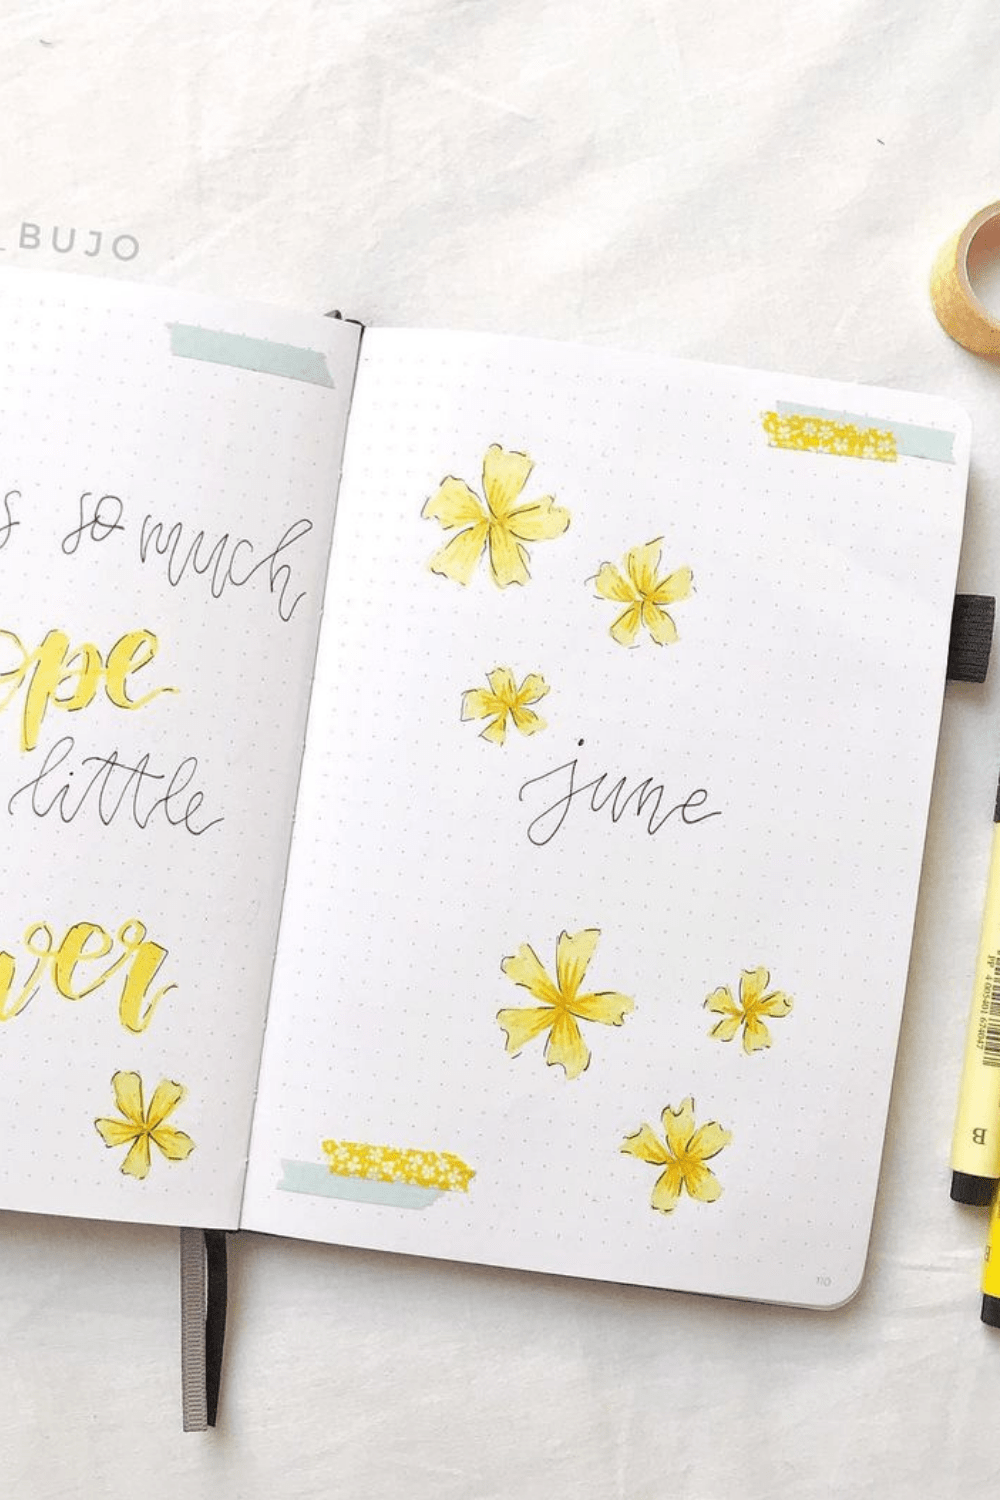 _BUJO
s so much
ope
little
wer
june
110
B
B